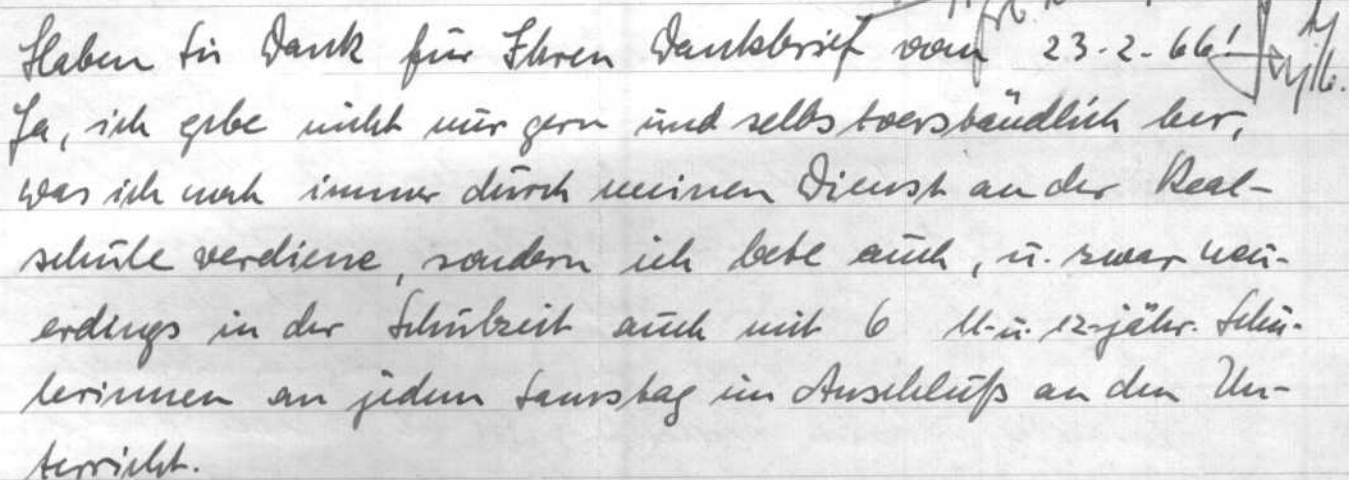 Haben Sie Dank für Ihren Dankbrief vom 23.2.66!
Ja, ich gebe nicht nur gern und selbstverständlich her,
was ich noch immer durch meinen Dienst an der Real-
schule verdiene, sondern ich bete auch, u. zwar neu-
erdings in der Schulzeit auch mit 6 11- u. 12-jähr. Schü-
lerinnen an jedem Samstag im Anschluß an den Un-
terricht.